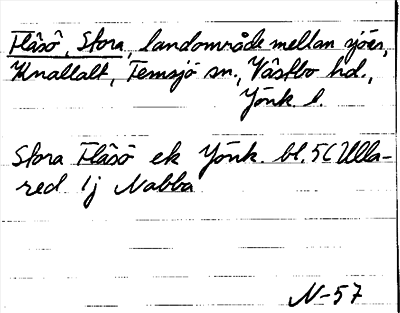 Flåsö, Stora, landområde mellan sjöar,
Knallalt, Femsjö sn., Västbo hd.,
Jönk. l.
Stora Flåsö ek Jönk. bl. 56 Ulla-
red 1j Nabba
N-57